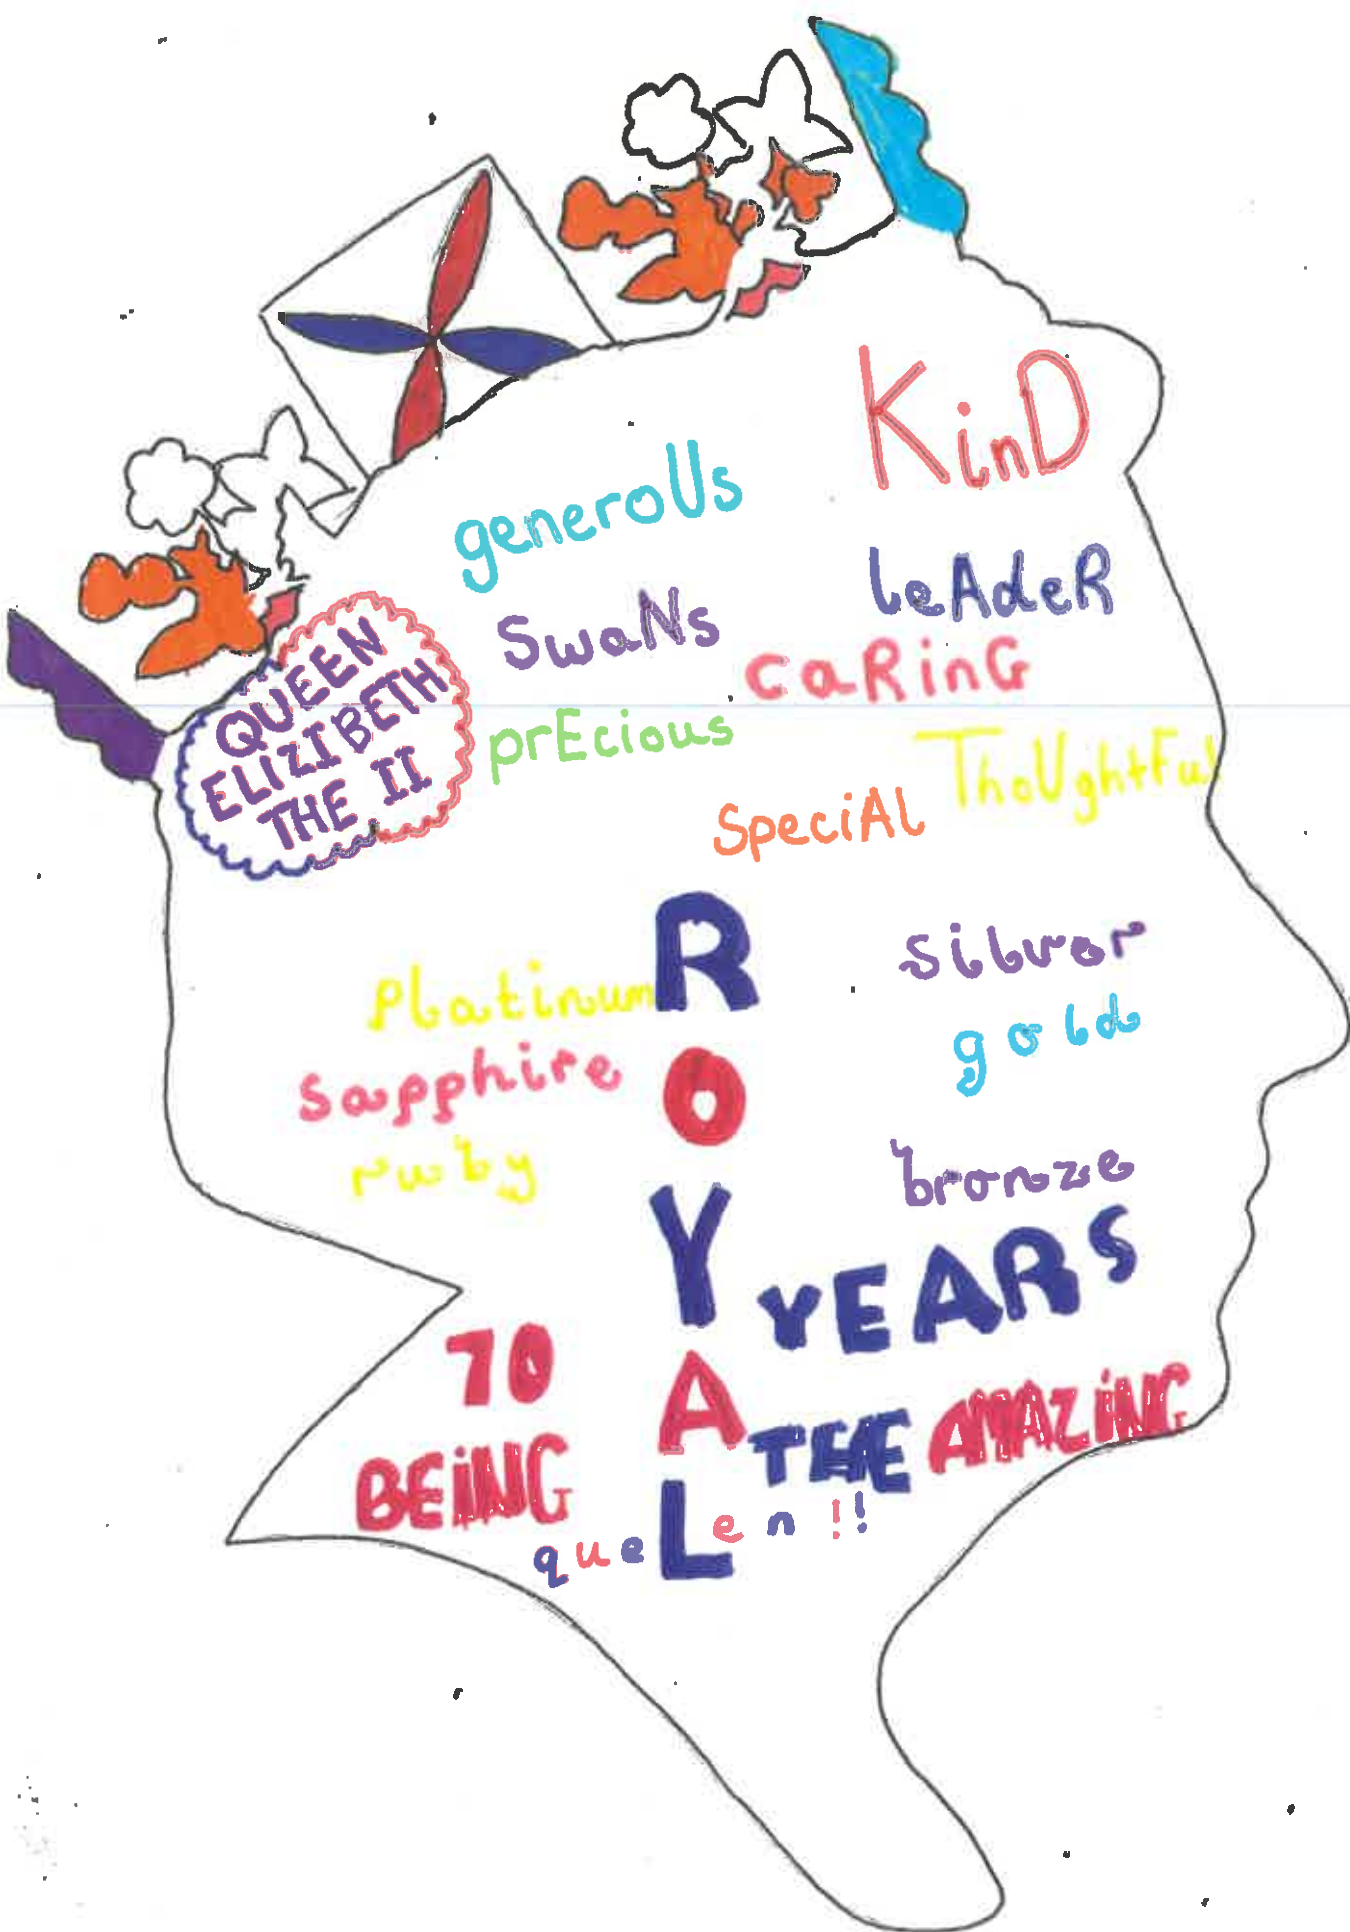 KinD
generoUs
leAdeR
SwaNs
caRinG
QUEEN
ELIZIBETH
THE II
prEcious
ThoUghtFul
SpeciAl
ROYAL
Platinum
silver
sapphire
gold
ruby
bronze
70 YEARS
BEiNG THE AMAZiNG
queen!!